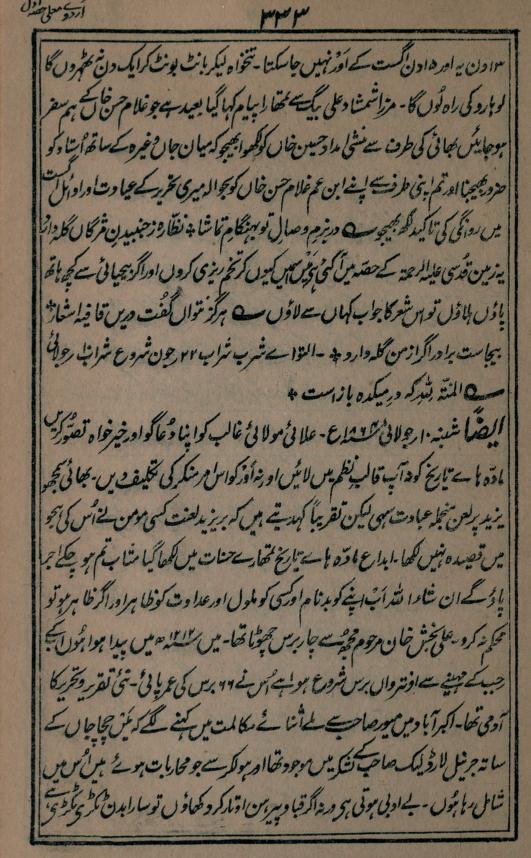 اُردوے معلیٰ حصّہ اوّل
۳۳۳
۱۳دن یہ اور ۱۵دن اگست کے اَوْر نہیں جاسکتا۔ تنخواہ لیکر بانٹ بونٹ کر ایک دن نہ ٹھہروں گا
لوہارو کی راہ لُوں گا۔ مرزا شمشاد علی بیگ سے تمھارا پیام کہا گیا بعید ہے جو غلام حسن خاں کے ہم سفر
ہو جائیں بھائی کی طرف سے منشی امداد حسین خاں کو لکھوا بھیجو کہ میان جان وغیرہ کے ساتھ اُستاد کو
ضرور بھیجنا اور تم اپنی طرف سے اپنے ابن عم غلام حسن خاں کو بحوالہ میری تحریر کے عیادت اور اوائل اگست
میں روانگی کی تاکید لکھ بھیجو ؎ در بزم وصال تو بہنگامِ تماشا٭ نظّارہ ز جنبیدن مژگاں گلہ دارد
یہ زمین قدسی علیہ الرحمۃ کے حصہ میں آگئی ہے میں اسمیں کیوں کر تخم ریزی کروں اور اگر بیحیائی سے کچھ ہاتھ
پاؤں ہلاؤں تو اس شعر کا جواب کہاں سے لاؤں ؎ ہرگز نتواں گفت دریں قافیہ اشعار٭
بیجاست برادر اگر از من گلہ دارد٭ ۔ التواے شرب شراب ۲۲ جون شروع شراب ۱۰ جولائی
؎ المنۃ للہ کہ در میکدہ باز است ٭
ایضًا شنبہ ۱۰ جولائی ۱۸۶۴ع۔ علائی مولائی غالب کو اپنا دعا گو اور خیر خواہ تصوّر کریں
مادّہ ہاے تاریخ کو نہ آپ قالبِ نظم میں لائیں اور نہ اَوْر کو اس امر منکر کی تکلیف دیں۔ بھائی سمجھو
یزید پر لعن منجملہ عبادت سہی لیکن تقریباً کہدیتے ہیں کہ بر یزید لعنت کسی مومن نے اُس کی ہجو
میں قصیدہ نہیں لکھا۔ ابداع مادّہ ہاے تاریخ تمھارے حسنات میں لکھا گیا مثاب تم ہو چکے اجر
پاؤ گے ان شاء اللہ اَبْ اپنے کو بدنام اور کسی کو ملول اور عداوت کو ظاہر اور اگر ظاہر ہو تو
محکم نہ کرو۔ علی بخش خان مرحوم مجھ سے چار برس چھوٹا تھا۔ میں ۱۲۱۲ھ میں پیدا ہوا ہُوں اب کے
رجب کے مہینے سے اونھترواں برس شروع ہوا ہے اُس نے ۶۶ برس کی عمر پائی۔ نئی تقریر و تحریر کا
آدمی تھا۔ اکبر آباد میں میور صاحب سے ملے اثنائے مکالمت میں کہنے لگے کہ میں چچا جان کے
ساتھ جرنیل لارڈ لیک صاحب کے لشکر میں موجود تھا اور ہولکر سے جو محاربات ہوئے ہیں اُس میں
شامل رہا ہُوں۔ بے ادبی ہوتی ہی ورنہ اگر قبا و پیرہن اوتار کر دکھاؤں تو سارا بدن ٹکڑی ٹکڑی ہے